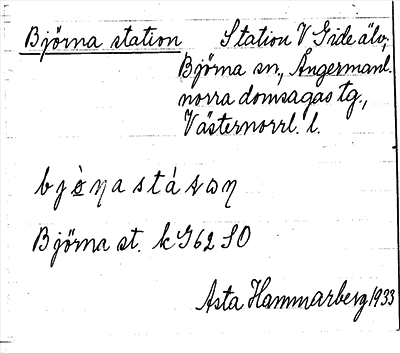 Björna station Station V Gide älv,
Björna sn., Ångermanl.
norra domsagas tg.,
Västernorrl. l.
Björna st. k G62 SO
Asta Hammarberg 1933